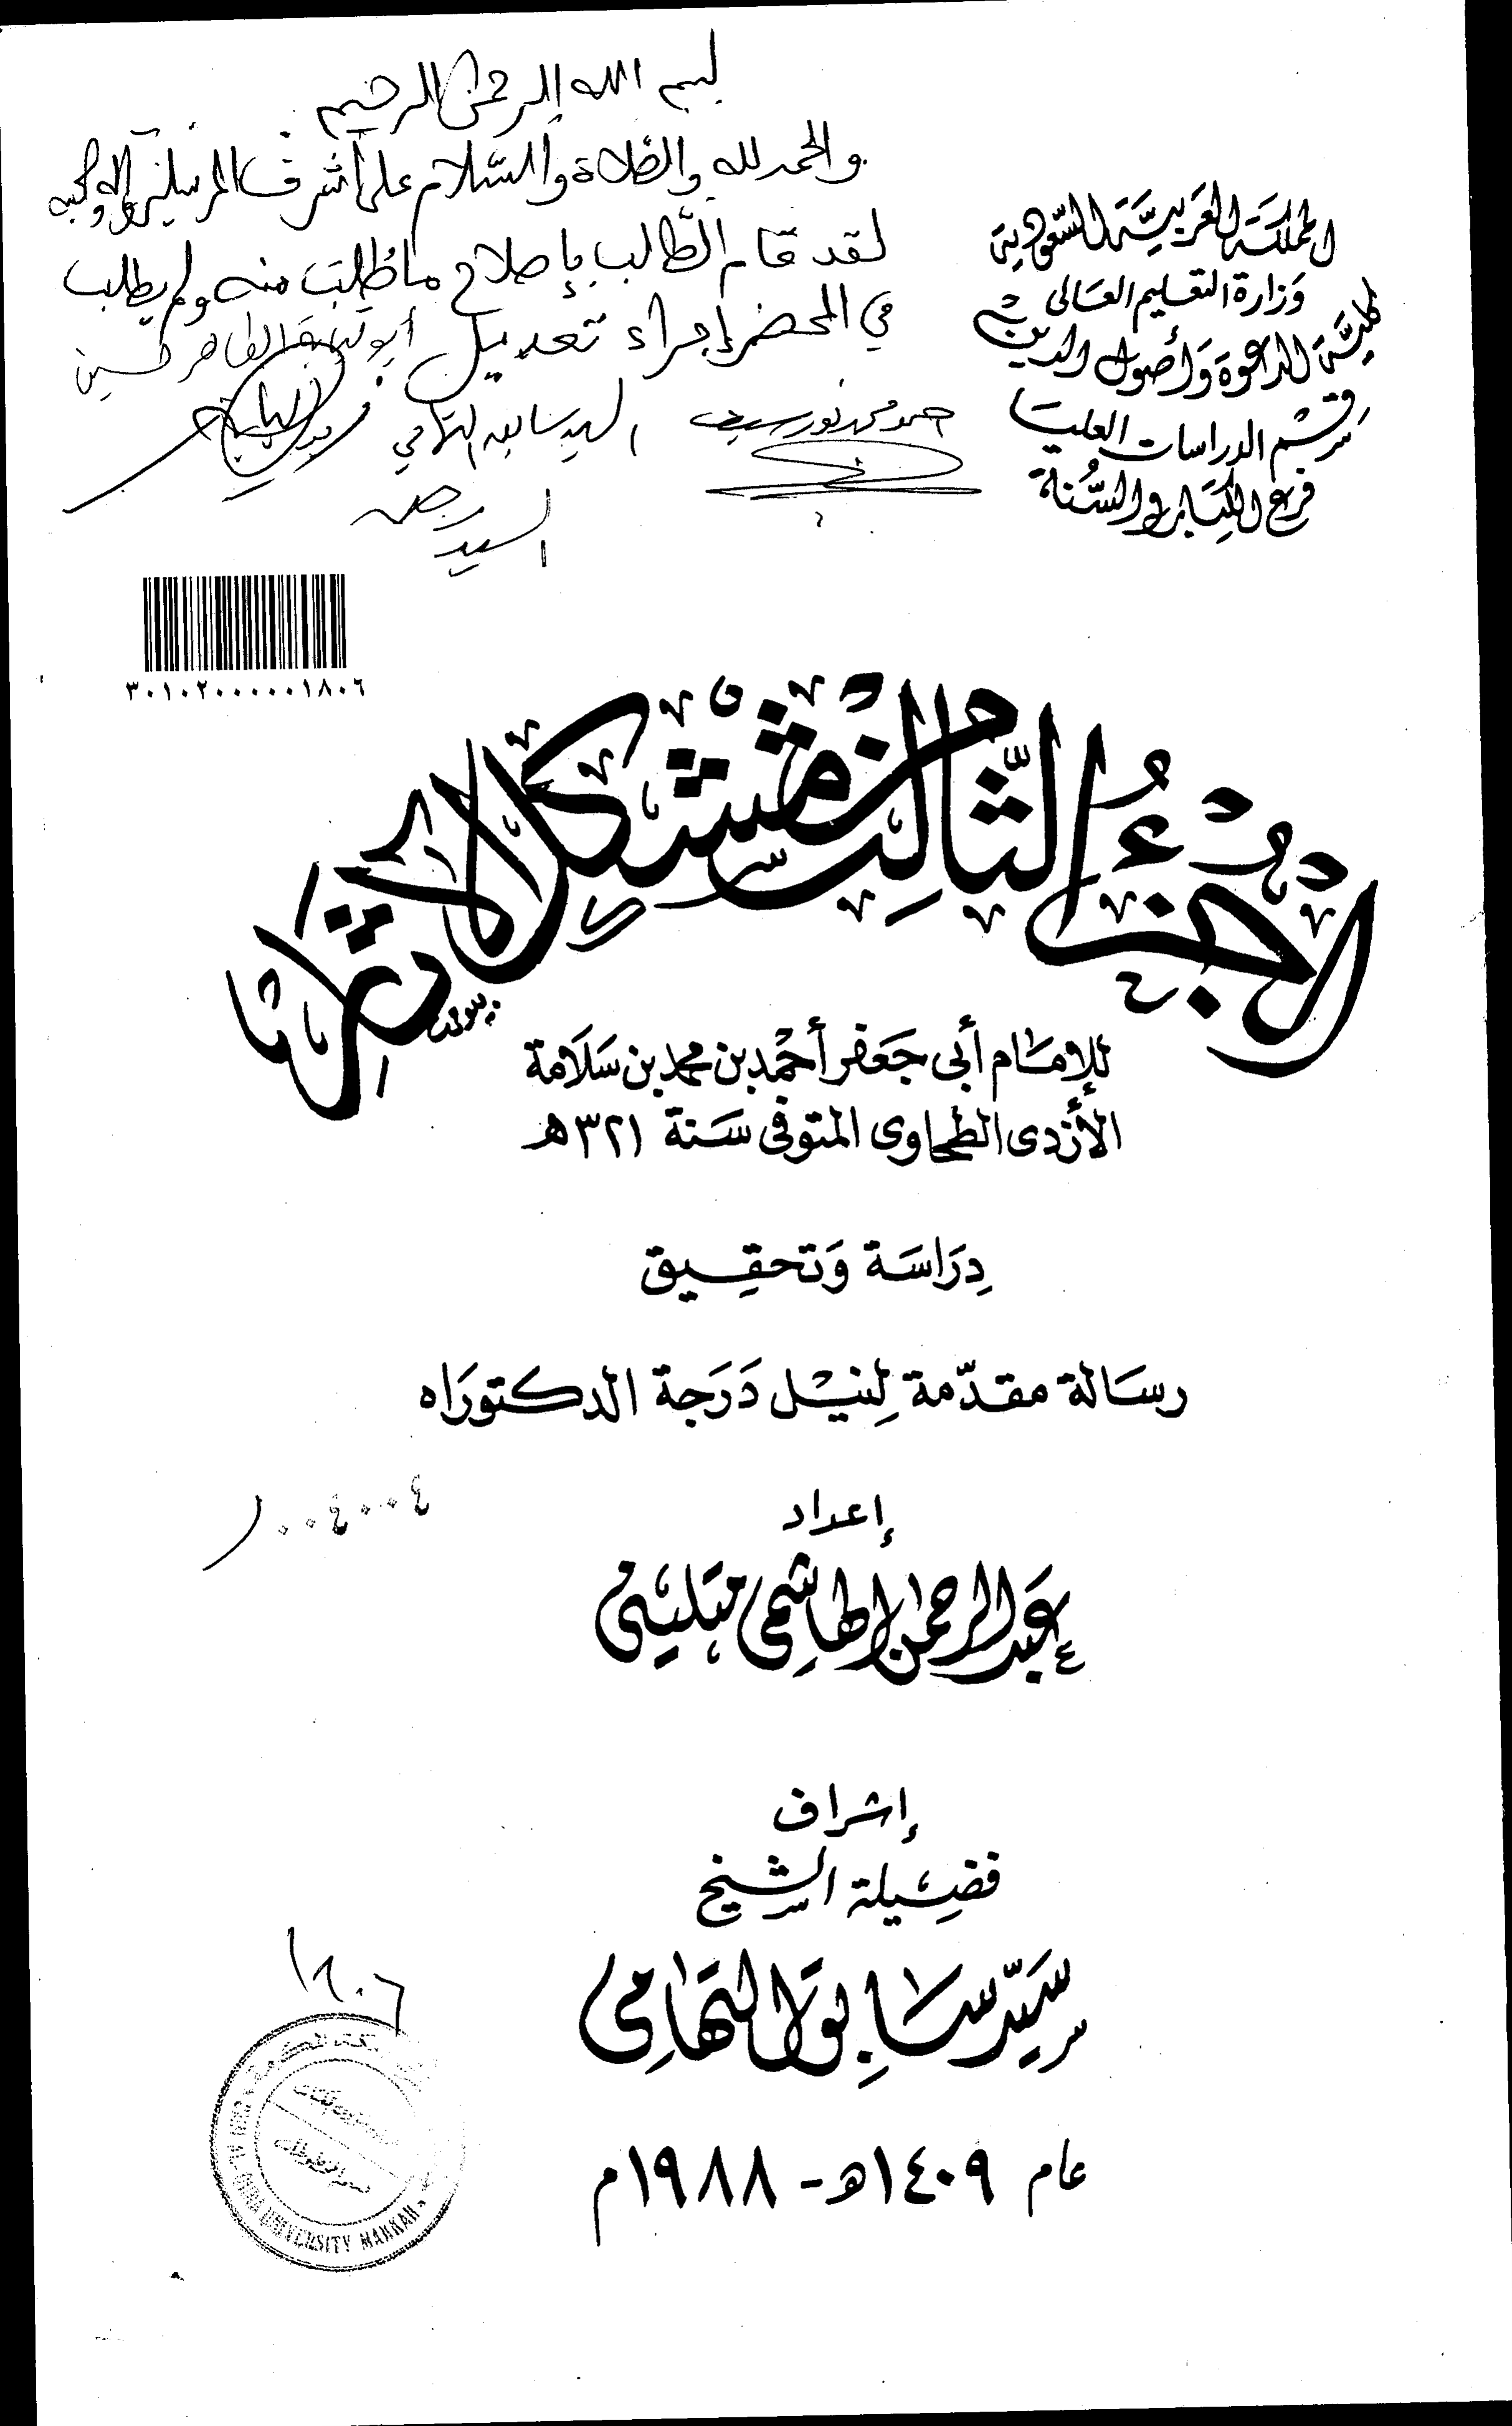 بسم الله الرحمن الرحيم
والحمد لله والصّلاة والسّلام على أشرف المرسلين وآله وصحبه
لقد قام الطّالب بإصلاح ما طُلِبَ منه ولم يطلب
في المحضر إجراء تعديل
أحمد محمد نور سيف
السيد سابق التهامي
السيد
المملكَة العَربيَّة السّعوديّة
وَزارة التعليم العَالى
كليَّة الدعوة وَأصول الدين
قِسْم الدراسات العليَا
فرع الكِتَاب والسُّنة
٣٠١٠٢٠٠٠٠٠١٨٠٦
الجُزءُ الثَّالِث مِنْ مُشْكِل الآثَار
للإمَام أبى جَعَفر أحْمَد بن محمد بن سَلَامة
الأزدى الطحاوى المتوفى سَنة ٣٢١ هـ
دِرَاسَة وَتحقِيق
رسَالة مقدّمة لِنيْل دَرَجة الدكتورَاه
إعداد
عَبد الرحمن الهاشِمى
إشراف
فضِيلة الشيخ
سَيّد سَابِق التهَامِى
عام ١٤٠٩هـ - ١٩٨٨م
١٨٠٦
UNIVERSITY MAKKAH